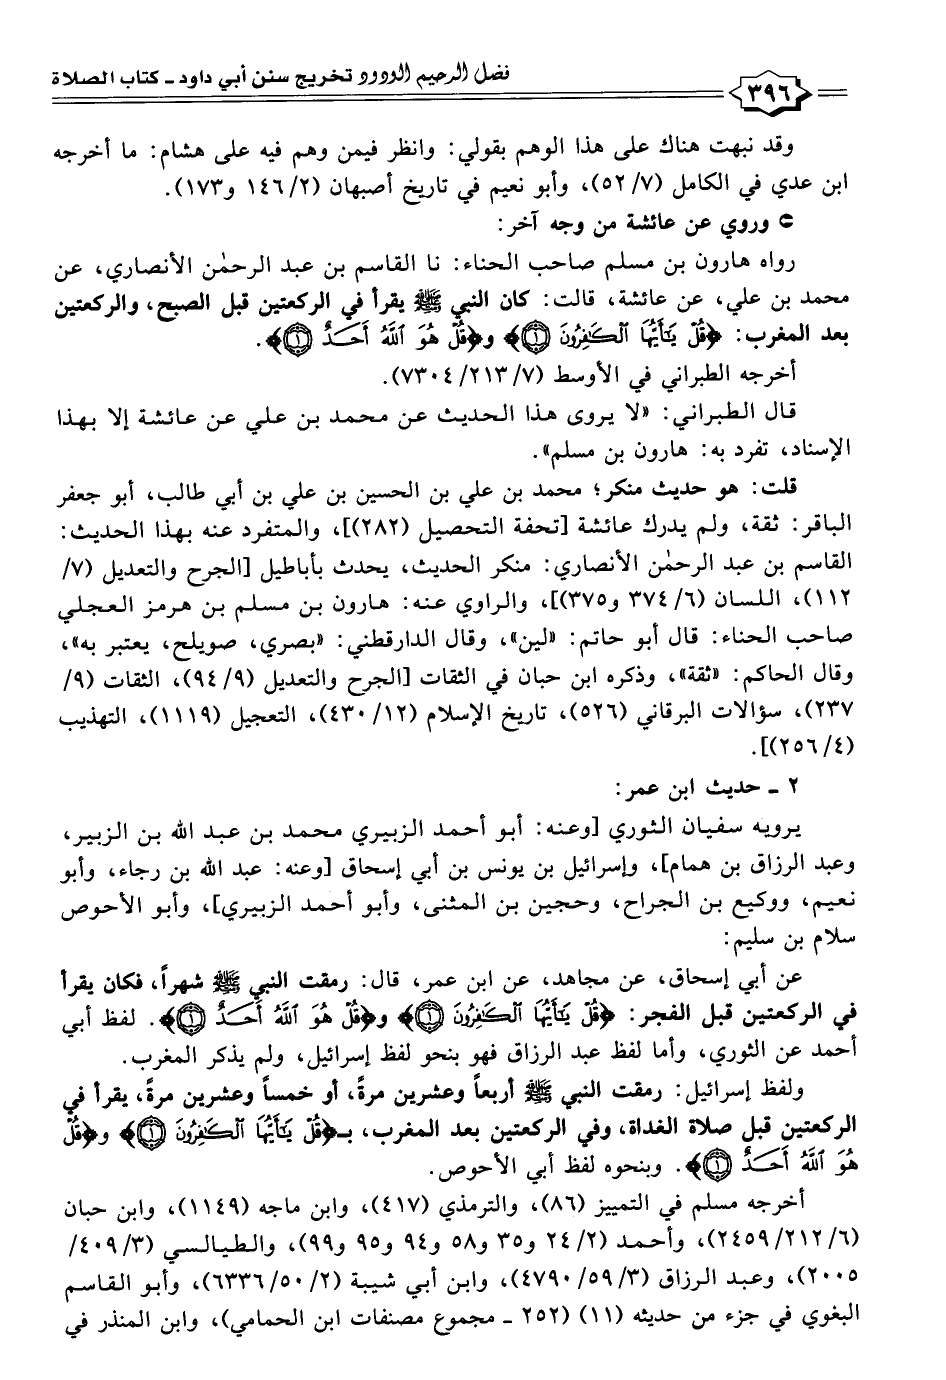 فضل الرحيم الودود تخريج سنن أبي داود ـ كتاب الصلاة
٣٩٦
وقد نبهت هناك على هذا الوهم بقولي: وانظر فيمن وهم فيه على هشام: ما أخرجه
ابن عدي في الكامل (٧/ ٥٢)، وأبو نعيم في تاريخ أصبهان (٢/ ١٤٦ و١٧٣).
⮊ وروي عن عائشة من وجه آخر:
رواه هارون بن مسلم صاحب الحناء: نا القاسم بن عبد الرحمٰن الأنصاري، عن
محمد بن علي، عن عائشة، قالت: كان النبي ﷺ يقرأ في الركعتين قبل الصبح، والركعتين
بعد المغرب: ﴿قُلْ يَٰٓأَيُّهَا ٱلْكَٰفِرُونَ ١﴾ و﴿قُلْ هُوَ ٱللَّهُ أَحَدٌ ١﴾.
أخرجه الطبراني في الأوسط (٧/ ٢١٣/ ٧٣٠٤).
قال الطبراني: «لا يروى هذا الحديث عن محمد بن علي عن عائشة إلا بهذا
الإسناد، تفرد به: هارون بن مسلم».
قلت: هو حديث منكر؛ محمد بن علي بن الحسين بن علي بن أبي طالب، أبو جعفر
الباقر: ثقة، ولم يدرك عائشة [تحفة التحصيل (٢٨٢)]، والمتفرد عنه بهذا الحديث:
القاسم بن عبد الرحمٰن الأنصاري: منكر الحديث، يحدث بأباطيل [الجرح والتعديل (٧/
١١٢)، اللسان (٦/ ٣٧٤ و٣٧٥)]، والراوي عنه: هارون بن مسلم بن هرمز العجلي
صاحب الحناء: قال أبو حاتم: «لين»، وقال الدارقطني: «بصري، صويلح، يعتبر به»،
وقال الحاكم: «ثقة»، وذكره ابن حبان في الثقات [الجرح والتعديل (٩/ ٩٤)، الثقات (٩/
٢٣٧)، سؤالات البرقاني (٥٢٦)، تاريخ الإسلام (١٢/ ٤٣٠)، التعجيل (١١١٩)، التهذيب
(٤/ ٢٥٦)].
٢ ـ حديث ابن عمر:
يرويه سفيان الثوري [وعنه: أبو أحمد الزبيري محمد بن عبد الله بن الزبير،
وعبد الرزاق بن همام]، وإسرائيل بن يونس بن أبي إسحاق [وعنه: عبد الله بن رجاء، وأبو
نعيم، ووكيع بن الجراح، وحجين بن المثنى، وأبو أحمد الزبيري]، وأبو الأحوص
سلام بن سليم:
عن أبي إسحاق، عن مجاهد، عن ابن عمر، قال: رمقت النبي ﷺ شهراً، فكان يقرأ
في الركعتين قبل الفجر: ﴿قُلْ يَٰٓأَيُّهَا ٱلْكَٰفِرُونَ ١﴾ و﴿قُلْ هُوَ ٱللَّهُ أَحَدٌ ١﴾. لفظ أبي
أحمد عن الثوري، وأما لفظ عبد الرزاق فهو بنحو لفظ إسرائيل، ولم يذكر المغرب.
ولفظ إسرائيل: رمقت النبي ﷺ أربعاً وعشرين مرةً، أو خمساً وعشرين مرةً، يقرأ في
الركعتين قبل صلاة الغداة، وفي الركعتين بعد المغرب، بـ﴿قُلْ يَٰٓأَيُّهَا ٱلْكَٰفِرُونَ ١﴾ و﴿قُلْ
هُوَ ٱللَّهُ أَحَدٌ ١﴾. وبنحوه لفظ أبي الأحوص.
أخرجه مسلم في التمييز (٨٦)، والترمذي (٤١٧)، وابن ماجه (١١٤٩)، وابن حبان
(٦/ ٢١٢/ ٢٤٥٩)، وأحمد (٢/ ٢٤ و٣٥ و٥٨ و٩٤ و٩٥ و٩٩)، والطيالسي (٣/ ٤٠٩/
٢٠٠٥)، وعبد الرزاق (٣/ ٥٩/ ٤٧٩٠)، وابن أبي شيبة (٢/ ٥٠/ ٦٣٣٦)، وأبو القاسم
البغوي في جزء من حديثه (١١) (٢٥٢ ـ مجموع مصنفات ابن الحمامي)، وابن المنذر في